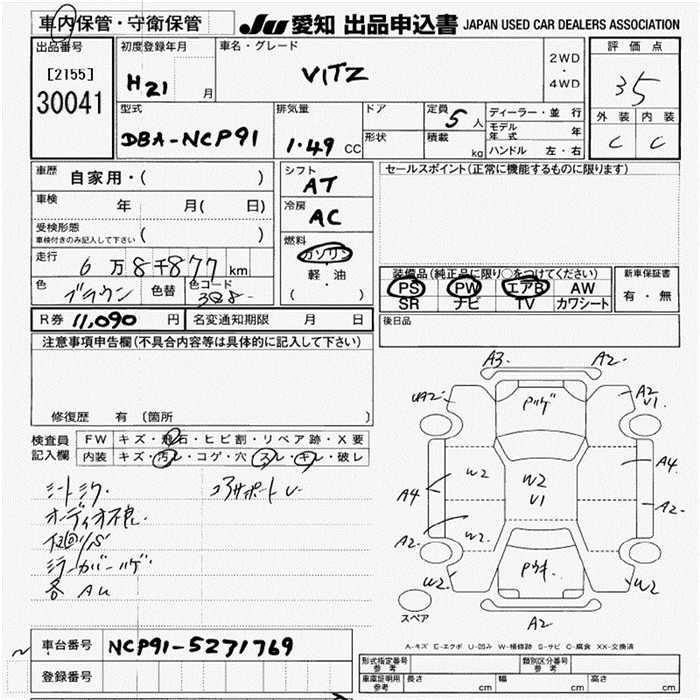 車内保管・守衛保管
JU 愛知 出品申込書 JAPAN USED CAR DEALERS ASSOCIATION
出品番号
[2155]
30041
初度登録年月
H21 月
車名・グレード
VITZ
2WD
・
4WD
評価点
35
外装 内装
C C
型式
DBA-NCP91
排気量
1.49 CC
ドア
形状
定員
5人
積載
kg
ディーラー・並行
モデル年式 年
ハンドル 左・右
車歴
自家用・( )
車検 年 月( 日)
受検形態
車検付きのみ記入して下さい ( )
走行
6万8千877km
色
ブラウン
色替
色コード
シフト
AT
冷房
AC
燃料
ガソリン
・
軽油
( )
セールスポイント(正常に機能するものに限ります)
装備品(純正品に限り○をつけてください)
PS PW エアB AW
SR ナビ TV カワシート
新車保証書
有・無
R券 11,090 円
名変通知期限 月 日
後日品
注意事項申告欄(不具合内容等は具体的に記入して下さい)
修復歴 有 〔箇所 〕
検査員
記入欄
FW キズ・飛石・ヒビ割・リペア跡・X要
内装 キズ・汚レ・コゲ・穴・スレ・キレ・破レ
シートシワ
コアサポートU-
オーディオ不良.
下廻りS
ミラーカバーハゲ
各AU
A3-
A2-
UA2-
Pハゲ
A2
V1.
W2
W2
V1
A4
A4
A2-
A2-
W2.
W2-
Pウキ.
W2
A2
スペア
A-キズ E-エクボ U-凹み W-補修跡 S-サビ C-腐食 XX-交換済
車台番号 NCP91-5271769
登録番号
型式指定番号
参考
類別区分番号
参考
車庫証明用
参考
長さ cm
幅 cm
高さ cm